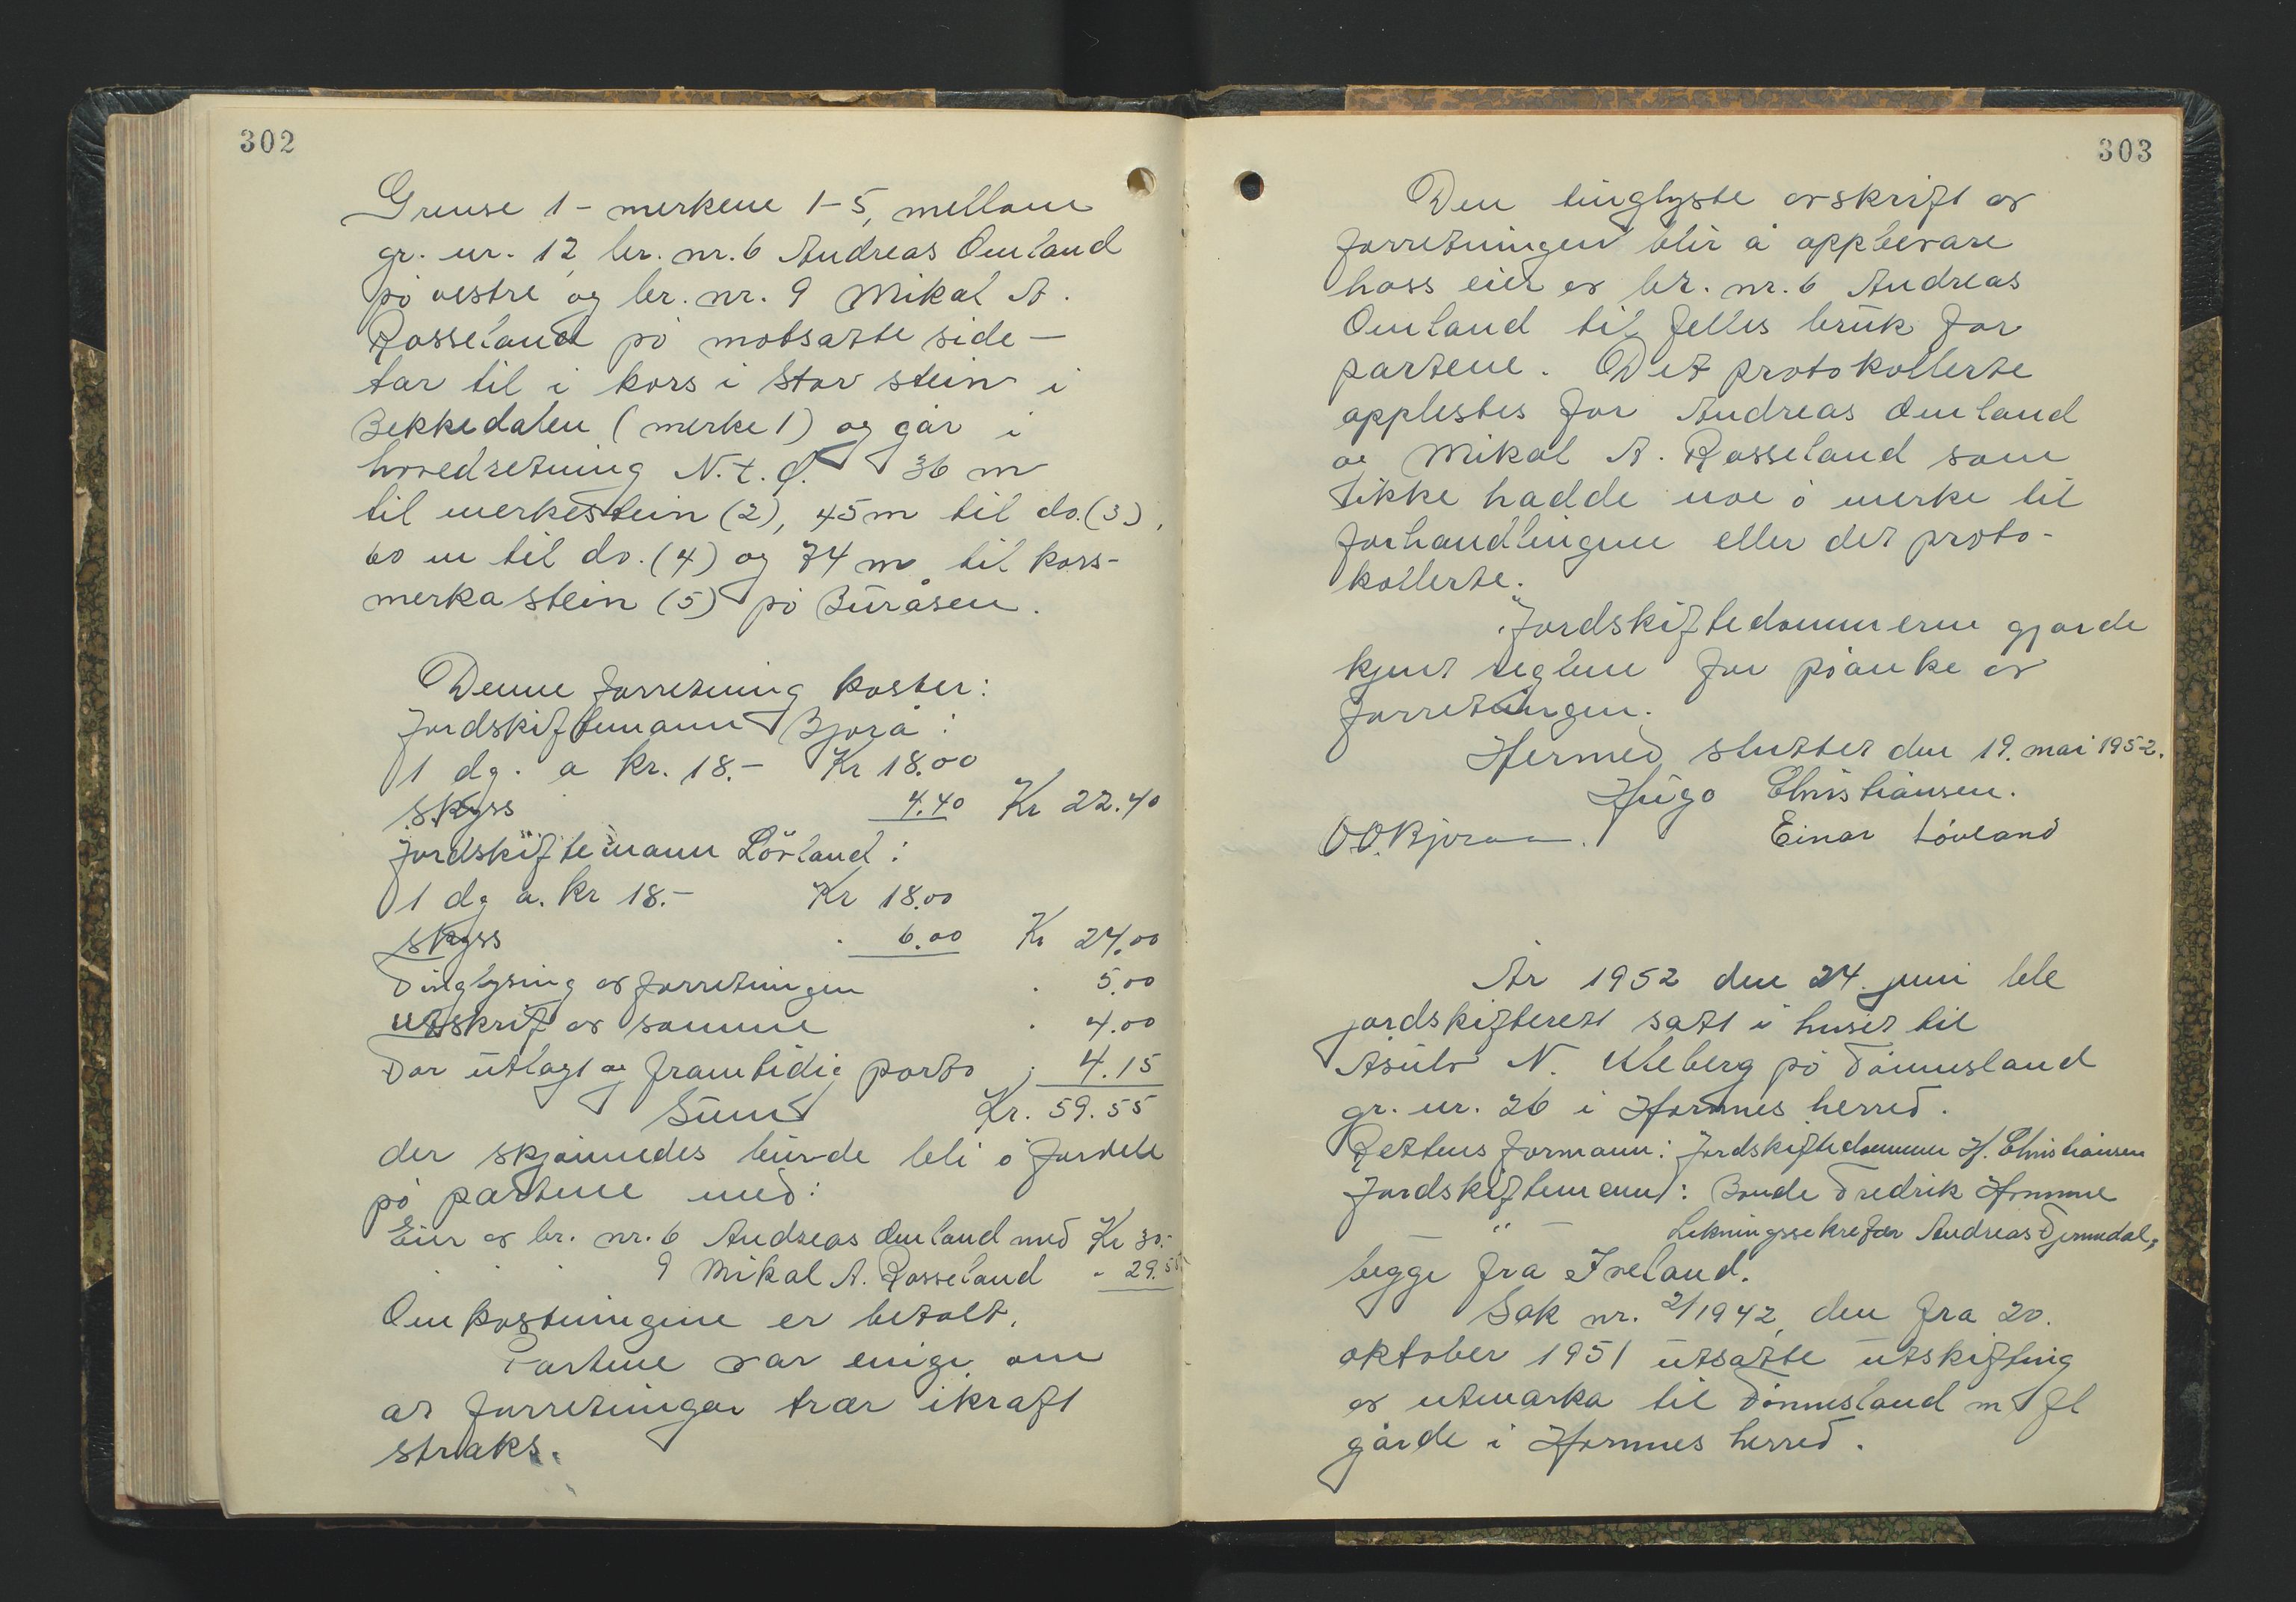 302
Grense 1 - merkene 1-5, mellom
gr. nr. 12, br. nr. 6 Andreas Omland
på vestre og br. nr. 9 Mikal A.
Rosseland på motsatte side -
tar til i kors i stor stein i
Bekkedalen (merke 1) og går i
hovedretning N.t.Ø. 36 m
til merkestein (2), 45 m til do. (3),
60 m til do. (4) og 74 m til kors-
merka stein (5) på Buråsen.
Denne forretning koster:
Jordskiftemann Bjorå:
1 dg. a kr. 18.- Kr 18.00
Skyss 4.40 Kr 22.40
Jordskiftemann Lövland:
1 dg a. kr 18.- Kr 18.00
Skyss 6.00 Kr 24.00
Tinglysing av forretningen " 5.00
Utskrift av samme " 4.00
For utlagt og framtidig porto " 4.15
Sum Kr. 59.55
det skjønnedes burde bli å fordele
på partene med:
Eier av br. nr. 6 Andreas Omland med Kr 30.-
" " " 9 Mikal A. Rosseland " 29.55
Omkostningene er betalt.
Partene var enige om
at forretningen trær ikraft
straks.
303
Den tinglyste avskrift av
forretningen blir å oppbevare
hoss eier av br. nr. 6 Andreas
Omland til felles bruk for
partene. Det protokollerte
opplestes for Andreas Omland
og Mikal A. Rosseland som
ikke hadde noe å merke til
forhandlingene eller det proto-
kollerte.
Jordskiftedommeren gjorde
kjent reglene for påanke av
forretningen.
Hermed sluttet den 19. mai 1952.
Hugo Christiansen.
O.O. Bjoraa. Einar Lövland
År 1952 den 24. juni ble
jordskifterett satt i huset til
Asulv N. Uleberg på Tönnesland
gr. nr. 26 i Hornnes herred.
Rettens formann: Jordskiftedommer H. Christiansen
Jordskiftemenn: Bonde Fredrik Homme
" - Likningssekretær Andreas Fjermedal,
begge fra Iveland.
Sak nr. 2/1942, den fra 20.
oktober 1951 utsatte utskifting
av utmarka til Tönnesland m fl
gårde i Hornnes herred.